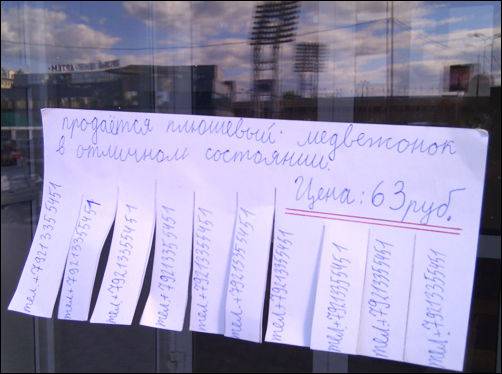 продаётся плюшевый медвежонок
в отличном состоянии.
Цена: 63 руб.
тел+79213355451
тел+79213355451
тел+79213355451
тел+79213355451
тел+79213355451
тел+79213355451
тел+79213355451
тел+79213355451
тел+79213355451
тел.79213355451